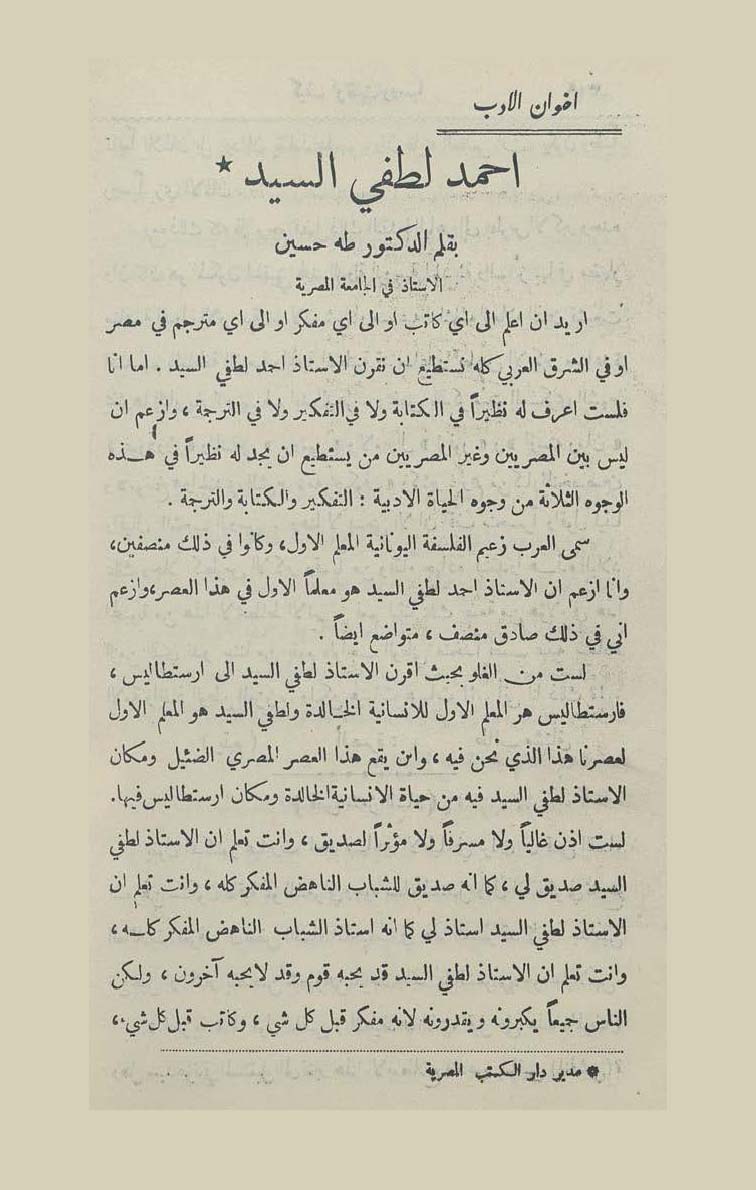 اخوان الادب
احمد لطفي السيد *
بقلم الدكتور طه حسين
الاستاذ في الجامعة المصرية
اريد ان اعلم الى اي كاتب او الى اي مفكر او الى اي مترجم في مصر
او في الشرق العربي كله نستطيع ان نقرن الاستاذ احمد لطفي السيد . اما انا
فلست اعرف له نظيراً في الكتابة ولا في التفكير ولا في الترجمة ، وازعم ان
ليس بين المصريين وغير المصريين من يستطيع ان يجد له نظيراً في هـذه
الوجوه الثلاثة من وجوه الحياة الادبية : التفكير والكتابة والترجمة .
سمى العرب زعيم الفلسفة اليونانية المعلم الاول، وكانوا في ذلك منصفين،
وانا ازعم ان الاستاذ احمد لطفي السيد هو معلمنا الاول في هذا العصر،وازعم
اني في ذلك صادق منصف ، متواضع ايضاً .
لست من الغلو بحيث اقرن الاستاذ لطفي السيد الى ارستطاليس ،
فارستطاليس هر المعلم الاول للانسانية الخالدة ولطفي السيد هو المعلم الاول
لعصرنا هذا الذي نحن فيه ، واين يقع هذا العصر المصري الضئيل ومكان
الاستاذ لطفي السيد فيه من حياة الانسانية الخالدة ومكان ارستطاليس فيها.
لست اذن غالياً ولا مسرفاً ولا مؤثراً لصديق ، وانت تعلم ان الاستاذ لطفي
السيد صديق لي ، كما انه صديق للشباب الناهض المفكر كله ، وانت تعلم ان
الاستاذ لطفي السيد استاذ لي كما انه استاذ الشباب الناهض المفكر كلـه ،
وانت تعلم ان الاستاذ لطفي السيد قد يحبه قوم وقد لا يحبه آخرون ، ولكن
الناس جميعاً يكبرونه ويقدرونه لانه مفكر قبل كل شي ، وكاتب قبل كل شي ،
* مدير دار الكتب المصرية